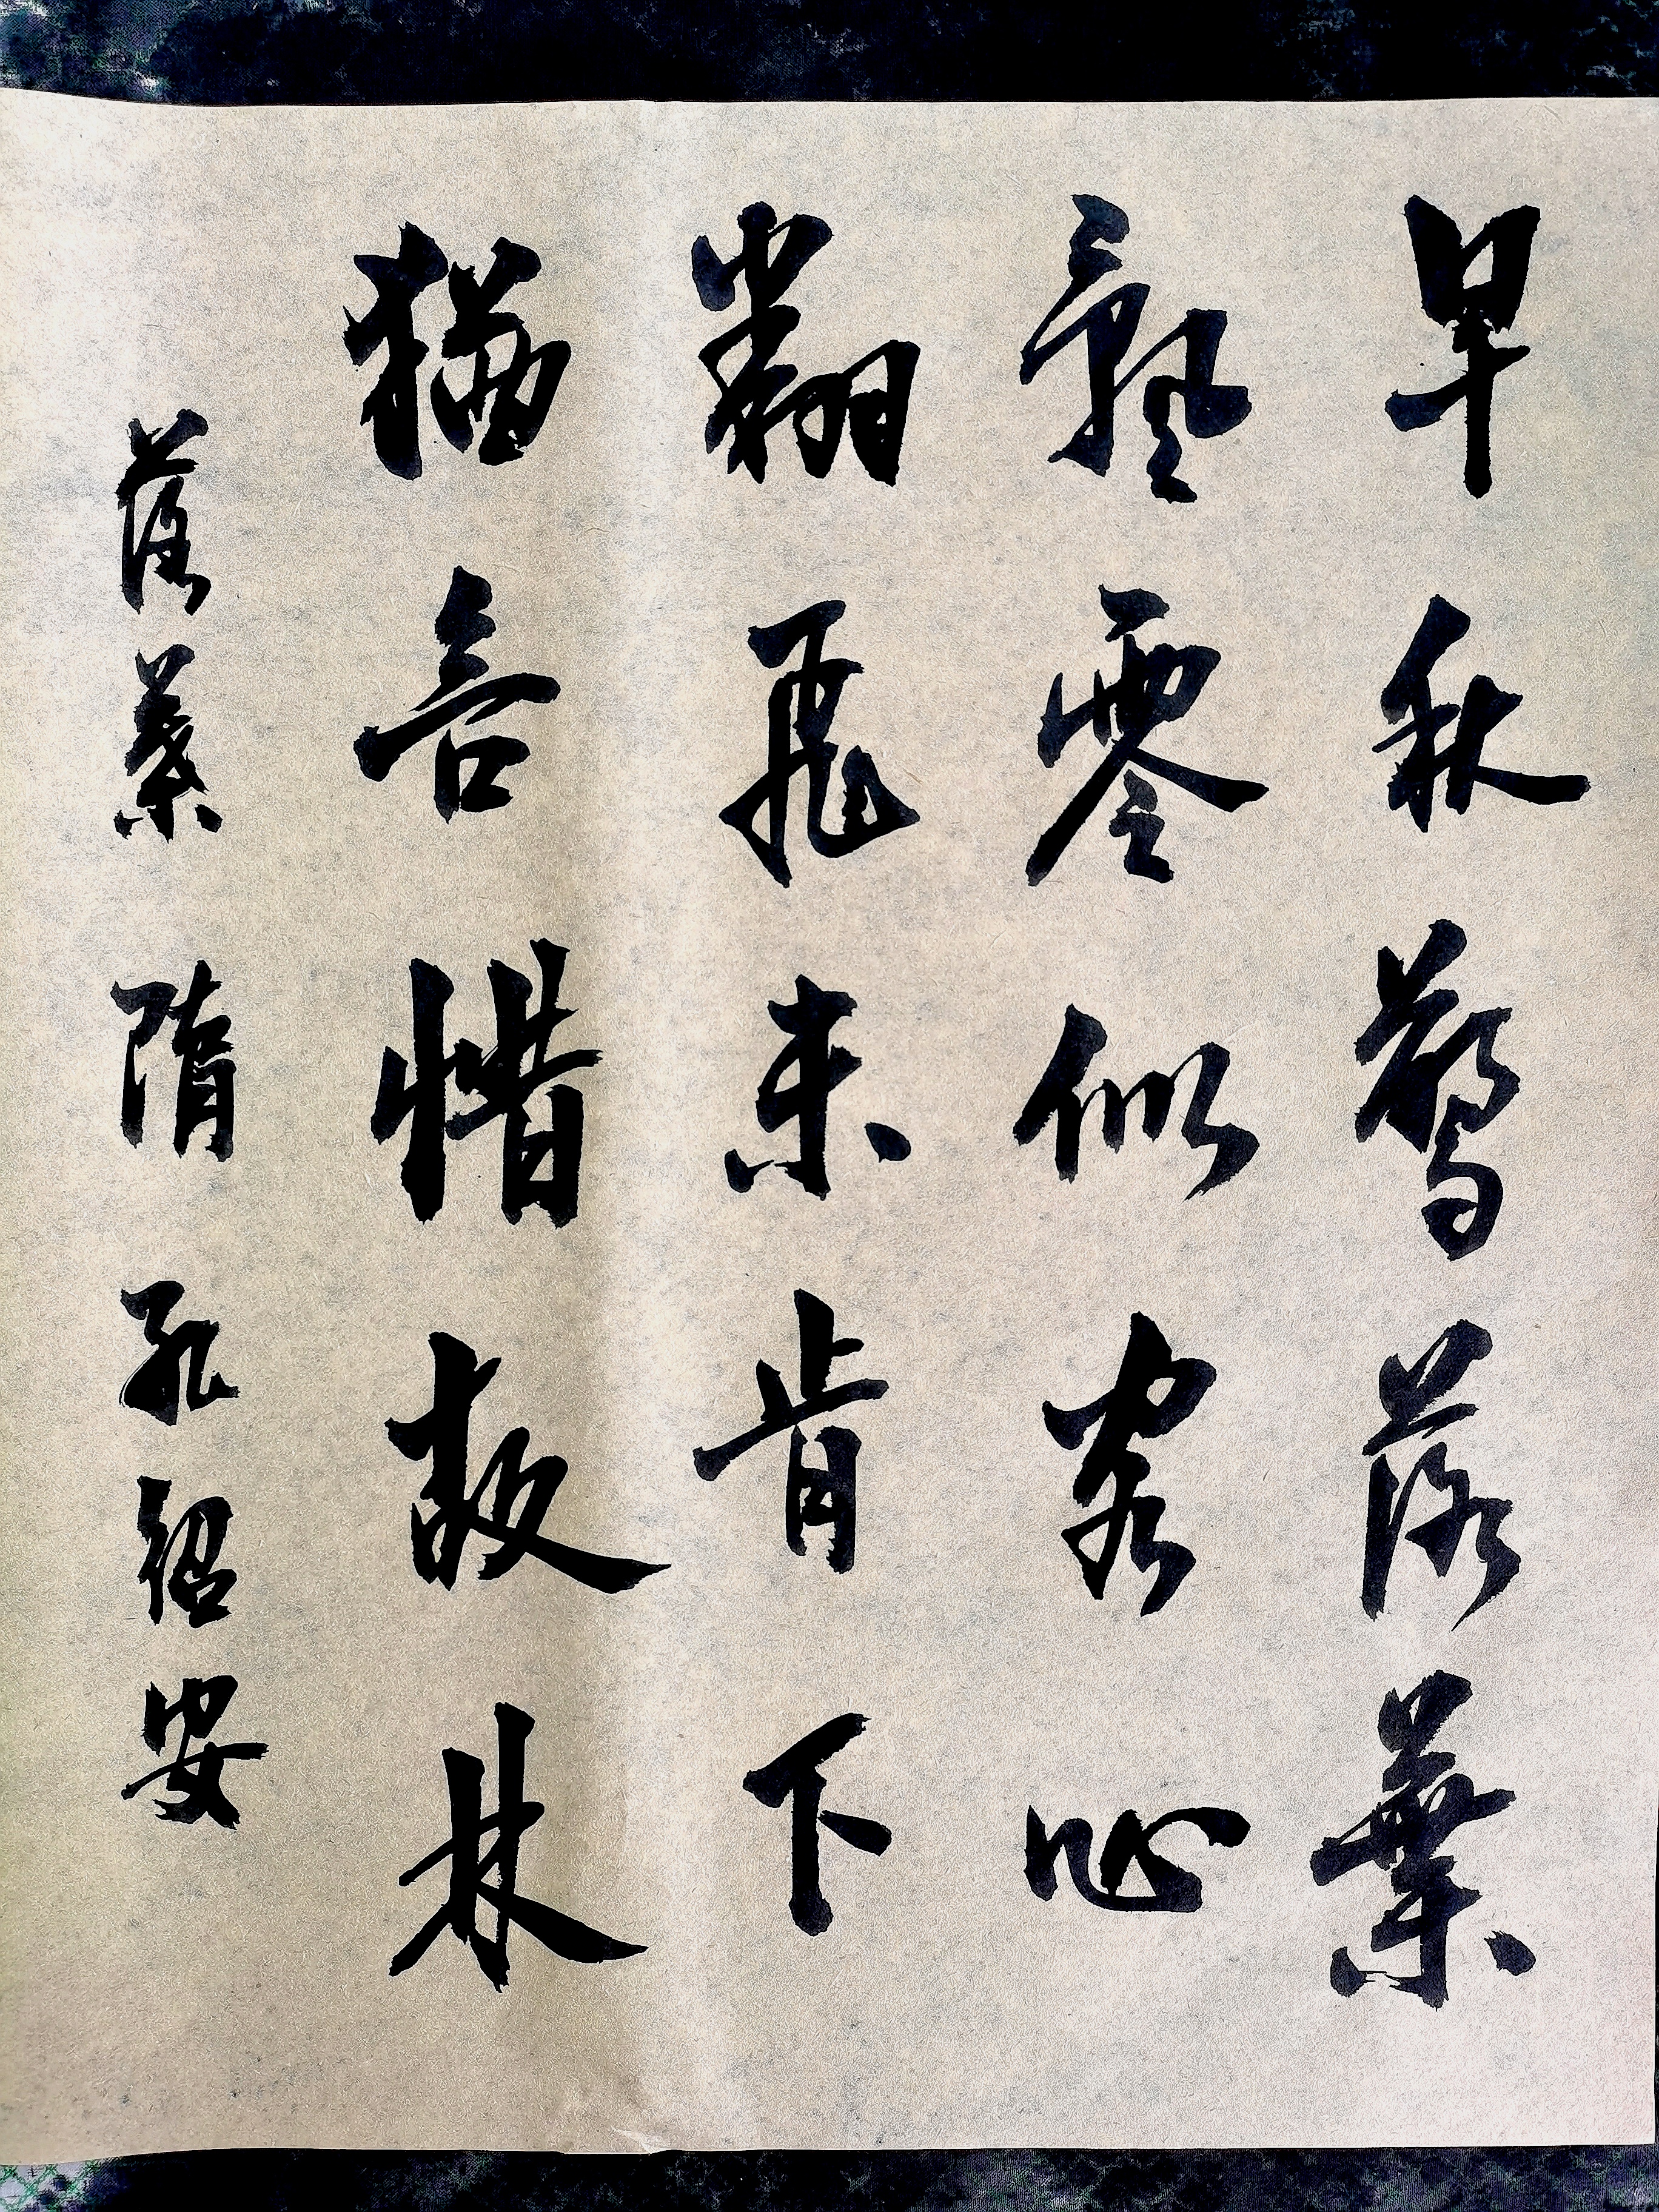 早秋驚落葉
飄零似客心
翻飛未肯下
猶言惜故林
落葉 隋 孔紹安